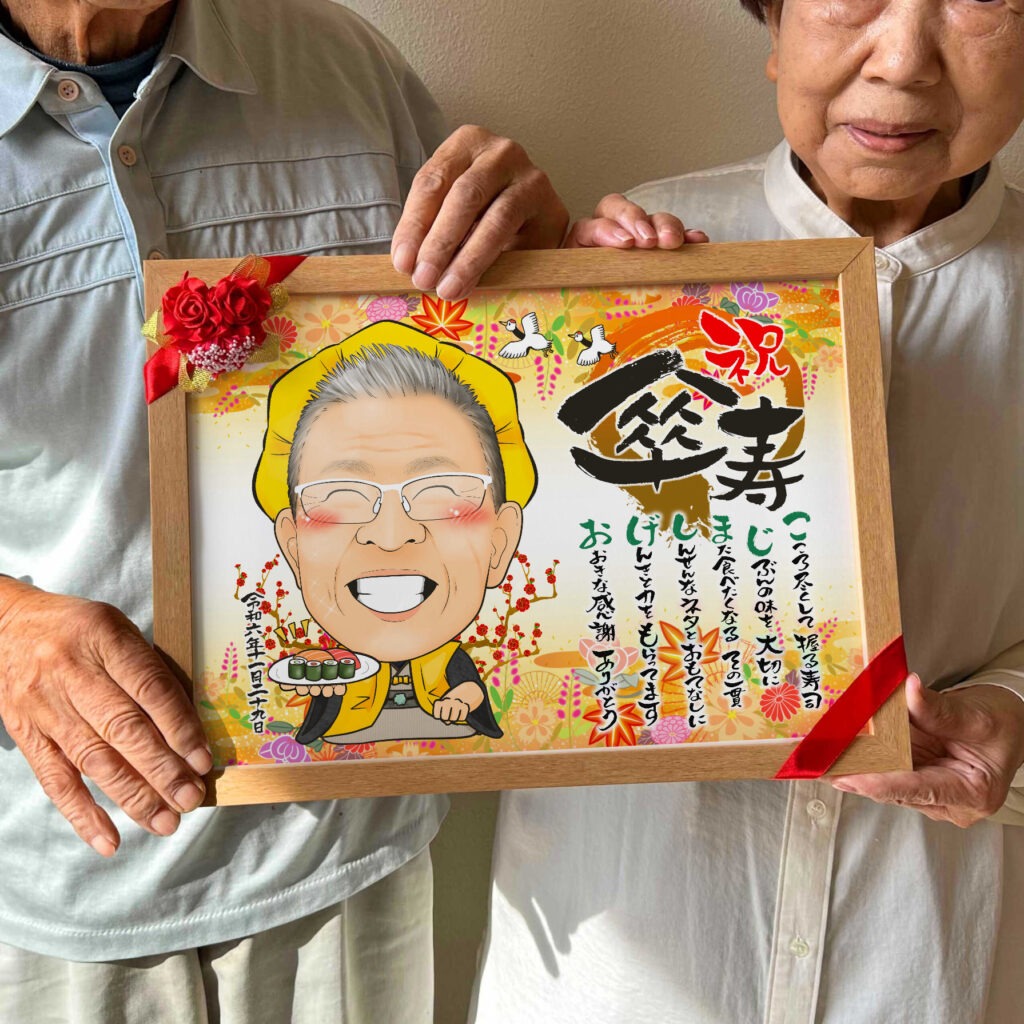 祝
傘寿
こころ尽くして 握る寿司
じぶんの味を 大切に
また食べたくなる その一貫
しんせんなネタとおもてなしに
げんきと力をもらってます
おおきな感謝 ありがとう
令和六年一月二十九日